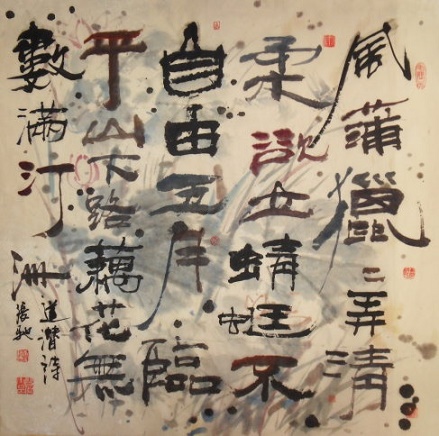 風蒲獵〻弄清
柔欲立蜻蜓不
自由五月臨
平山下路藕花無
數滿汀洲
道潛詩
張馳